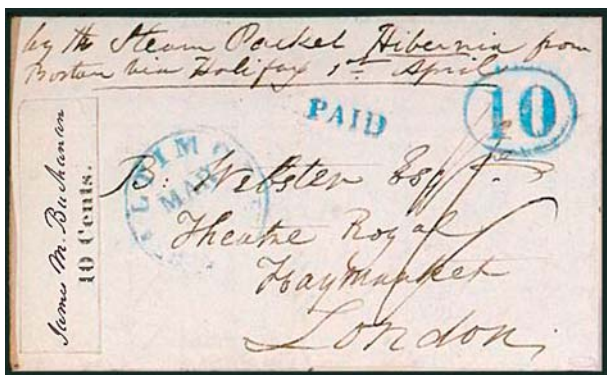 by the Steam Packet Hibernia from
Boston via Halifax 1st April
PAID
10
James M. Buchanan
10 Cents.
MAR
B. Webster Esqre
Theatre Royal
Haymarket
London